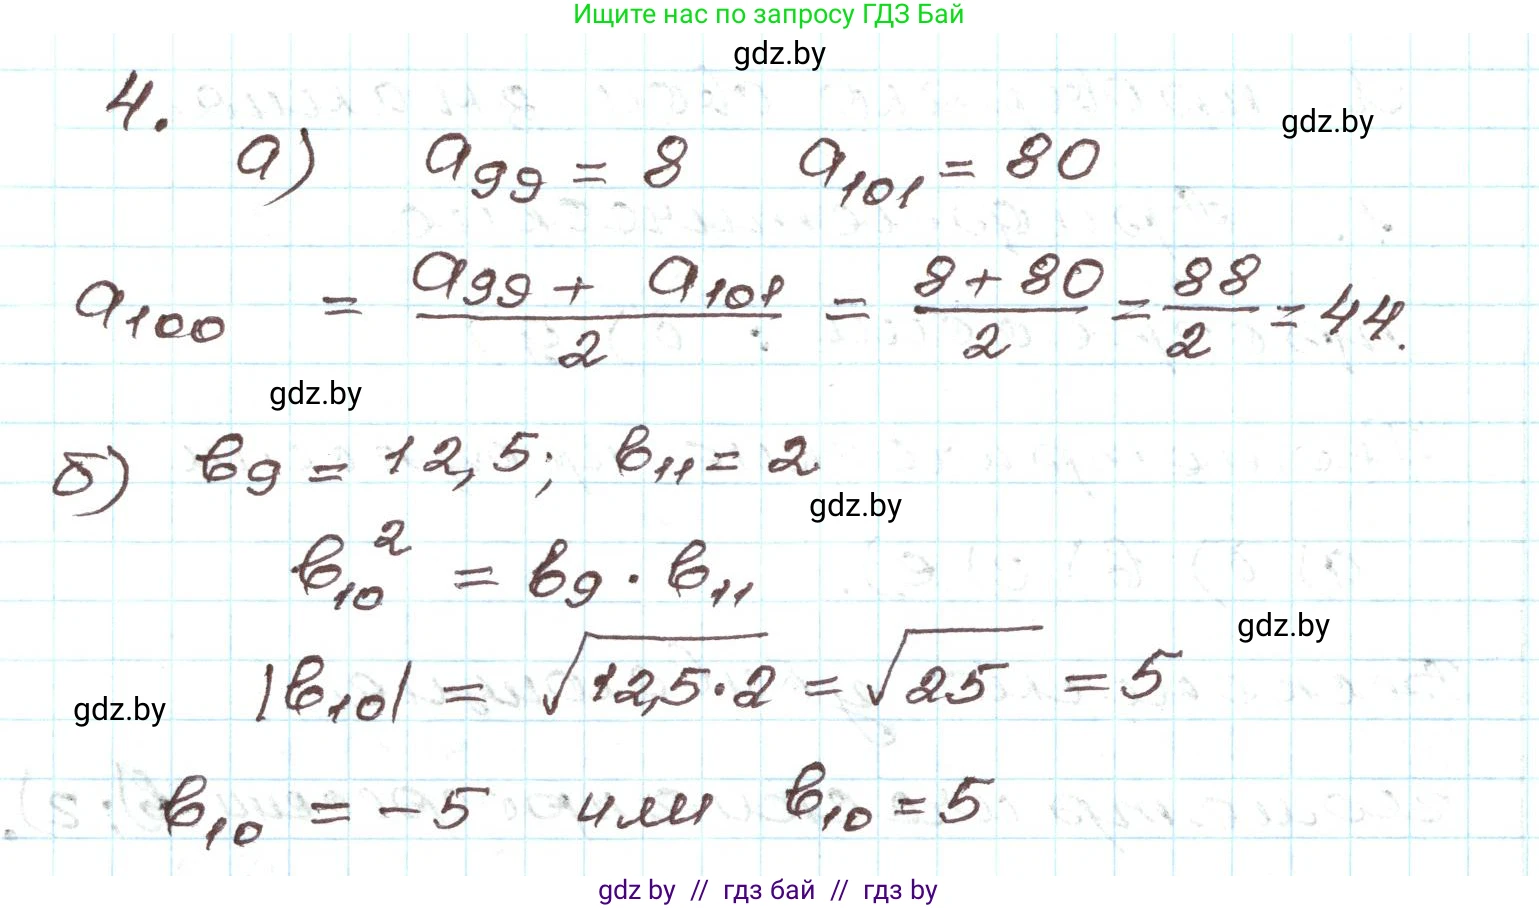 Ищите нас по запросу ГДЗ Бай
gdz.by
4.
gdz.by
а) a₉₉ = 8 a₁₀₁ = 80
a₁₀₀ = (a₉₉ + a₁₀₁)/2 = (8 + 80)/2 = 88/2 = 44.
gdz.by
б) b₉ = 12,5; b₁₁ = 2
gdz.by
b₁₀² = b₉ · b₁₁
gdz.by
|b₁₀| = √(12,5·2) = √25 = 5
gdz.by
b₁₀ = -5 или b₁₀ = 5
gdz by // гдз бай // гдз by